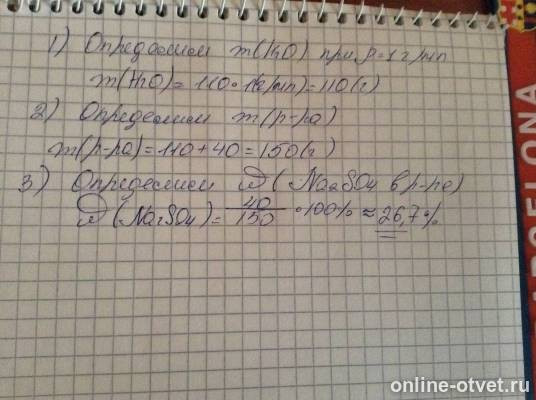 1) Определим m(H2O) при ρ=1 г/мл
m(H2O)= 110 · 1(г/мл)=110(г)
2) Определим m(р-ра)
m(р-ра)=110+40=150(г)
3) Определим ω (Na2SO4 в р-ре)
ω (Na2SO4)= 40/150 · 100% ≈ 26,7%
CELONA
online-otvet.ru